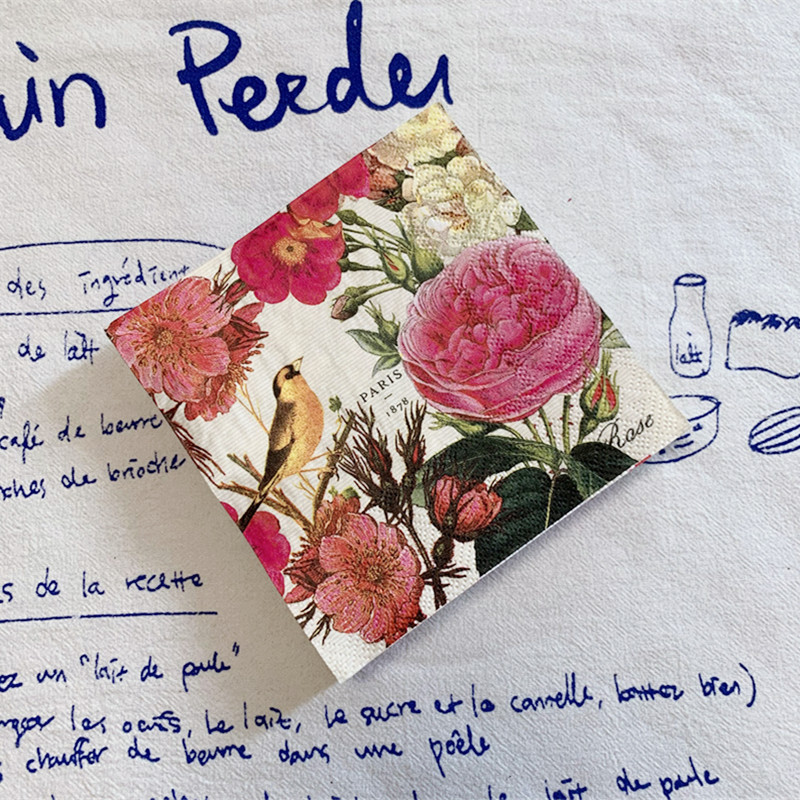 Perdu
des ingrédients
de lait
café de beurre
de brioche
lait
PARIS
1878
Rose
de la recette
un "lait de poule"
les oeufs, le lait, le sucre et la cannelle, battez bien)
chauffer de beurre dans une poêle
lait de poule